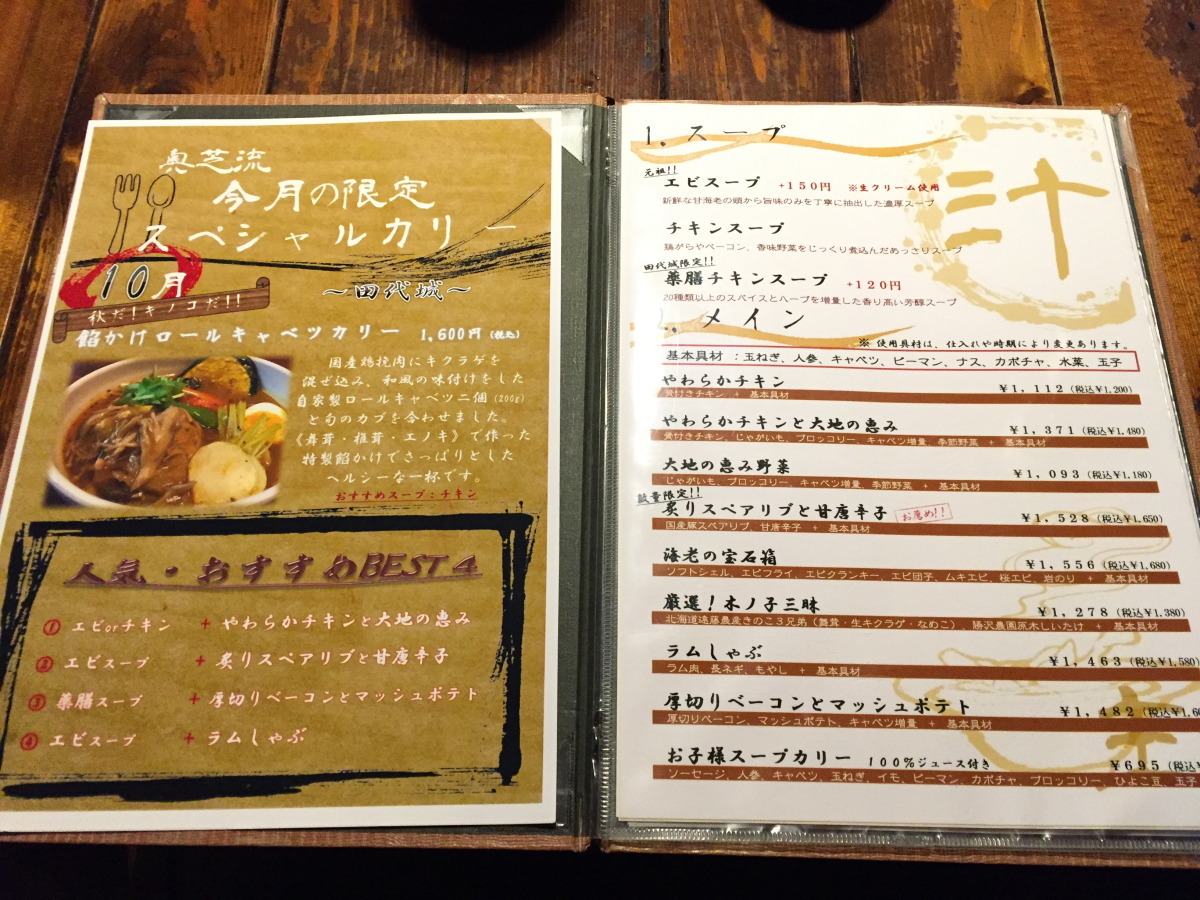 奥芝流
今月の限定
スペシャルカリー
10月
～田代城～
秋だ！キノコだ！！
餡かけロールキャベツカリー 1,600円(税込)
国産鶏挽肉にキクラゲを
混ぜ込み、和風の味付けをした
自家製ロールキャベツ二個(200g)
と旬のカブを合わせました。
《舞茸・椎茸・エノキ》で作った
特製餡かけでさっぱりとした
ヘルシーな一杯です。
おすすめスープ：チキン
人気・おすすめBEST4
① エビorチキン + やわらかチキンと大地の恵み
② エビスープ + 炙りスペアリブと甘唐辛子
③ 薬膳スープ + 厚切りベーコンとマッシュポテト
④ エビスープ + ラムしゃぶ
汁
1. スープ
元祖!!
エビスープ +150円 ※生クリーム使用
新鮮な甘海老の頭から旨味のみを丁寧に抽出した濃厚スープ
チキンスープ
鶏がらやベーコン、香味野菜をじっくり煮込んだあっさりスープ
田代城限定!!
薬膳チキンスープ +120円
20種類以上のスパイスとハーブを増量した香り高い芳醇スープ
2. メイン
※ 使用具材は、仕入れや時期により変更あります。
基本具材 ：玉ねぎ、人参、キャベツ、ピーマン、ナス、カボチャ、水菜、玉子
やわらかチキン ￥1,112(税込￥1,200)
骨付きチキン + 基本具材
やわらかチキンと大地の恵み ￥1,371(税込￥1,480)
骨付きチキン、じゃがいも、ブロッコリー、キャベツ増量、季節野菜 + 基本具材
大地の恵み野菜 ￥1,093(税込￥1,180)
じゃがいも、ブロッコリー、キャベツ増量、季節野菜 + 基本具材
数量限定!!
炙りスペアリブと甘唐辛子 お薦め!! ￥1,528(税込￥1,650)
国産豚スペアリブ、甘唐辛子 + 基本具材
海老の宝石箱 ￥1,556(税込￥1,680)
ソフトシェル、エビフライ、エビクランキー、エビ団子、ムキエビ、桜エビ、岩のり + 基本具材
厳選！木ノ子三昧 ￥1,278(税込￥1,380)
北海道遠藤農産きのこ3兄弟（舞茸・生キクラゲ・なめこ）、勝沢農園原木しいたけ + 基本具材
ラムしゃぶ ￥1,463(税込￥1,580)
ラム肉、長ネギ、もやし + 基本具材
厚切りベーコンとマッシュポテト ￥1,482(税込￥1,60
厚切りベーコン、マッシュポテト、キャベツ増量 + 基本具材
お子様スープカリー 100%ジュース付き ￥695(税込￥
ソーセージ、人参、キャベツ、玉ねぎ、イモ、ピーマン、カボチャ、ブロッコリー、ひよこ豆、玉子